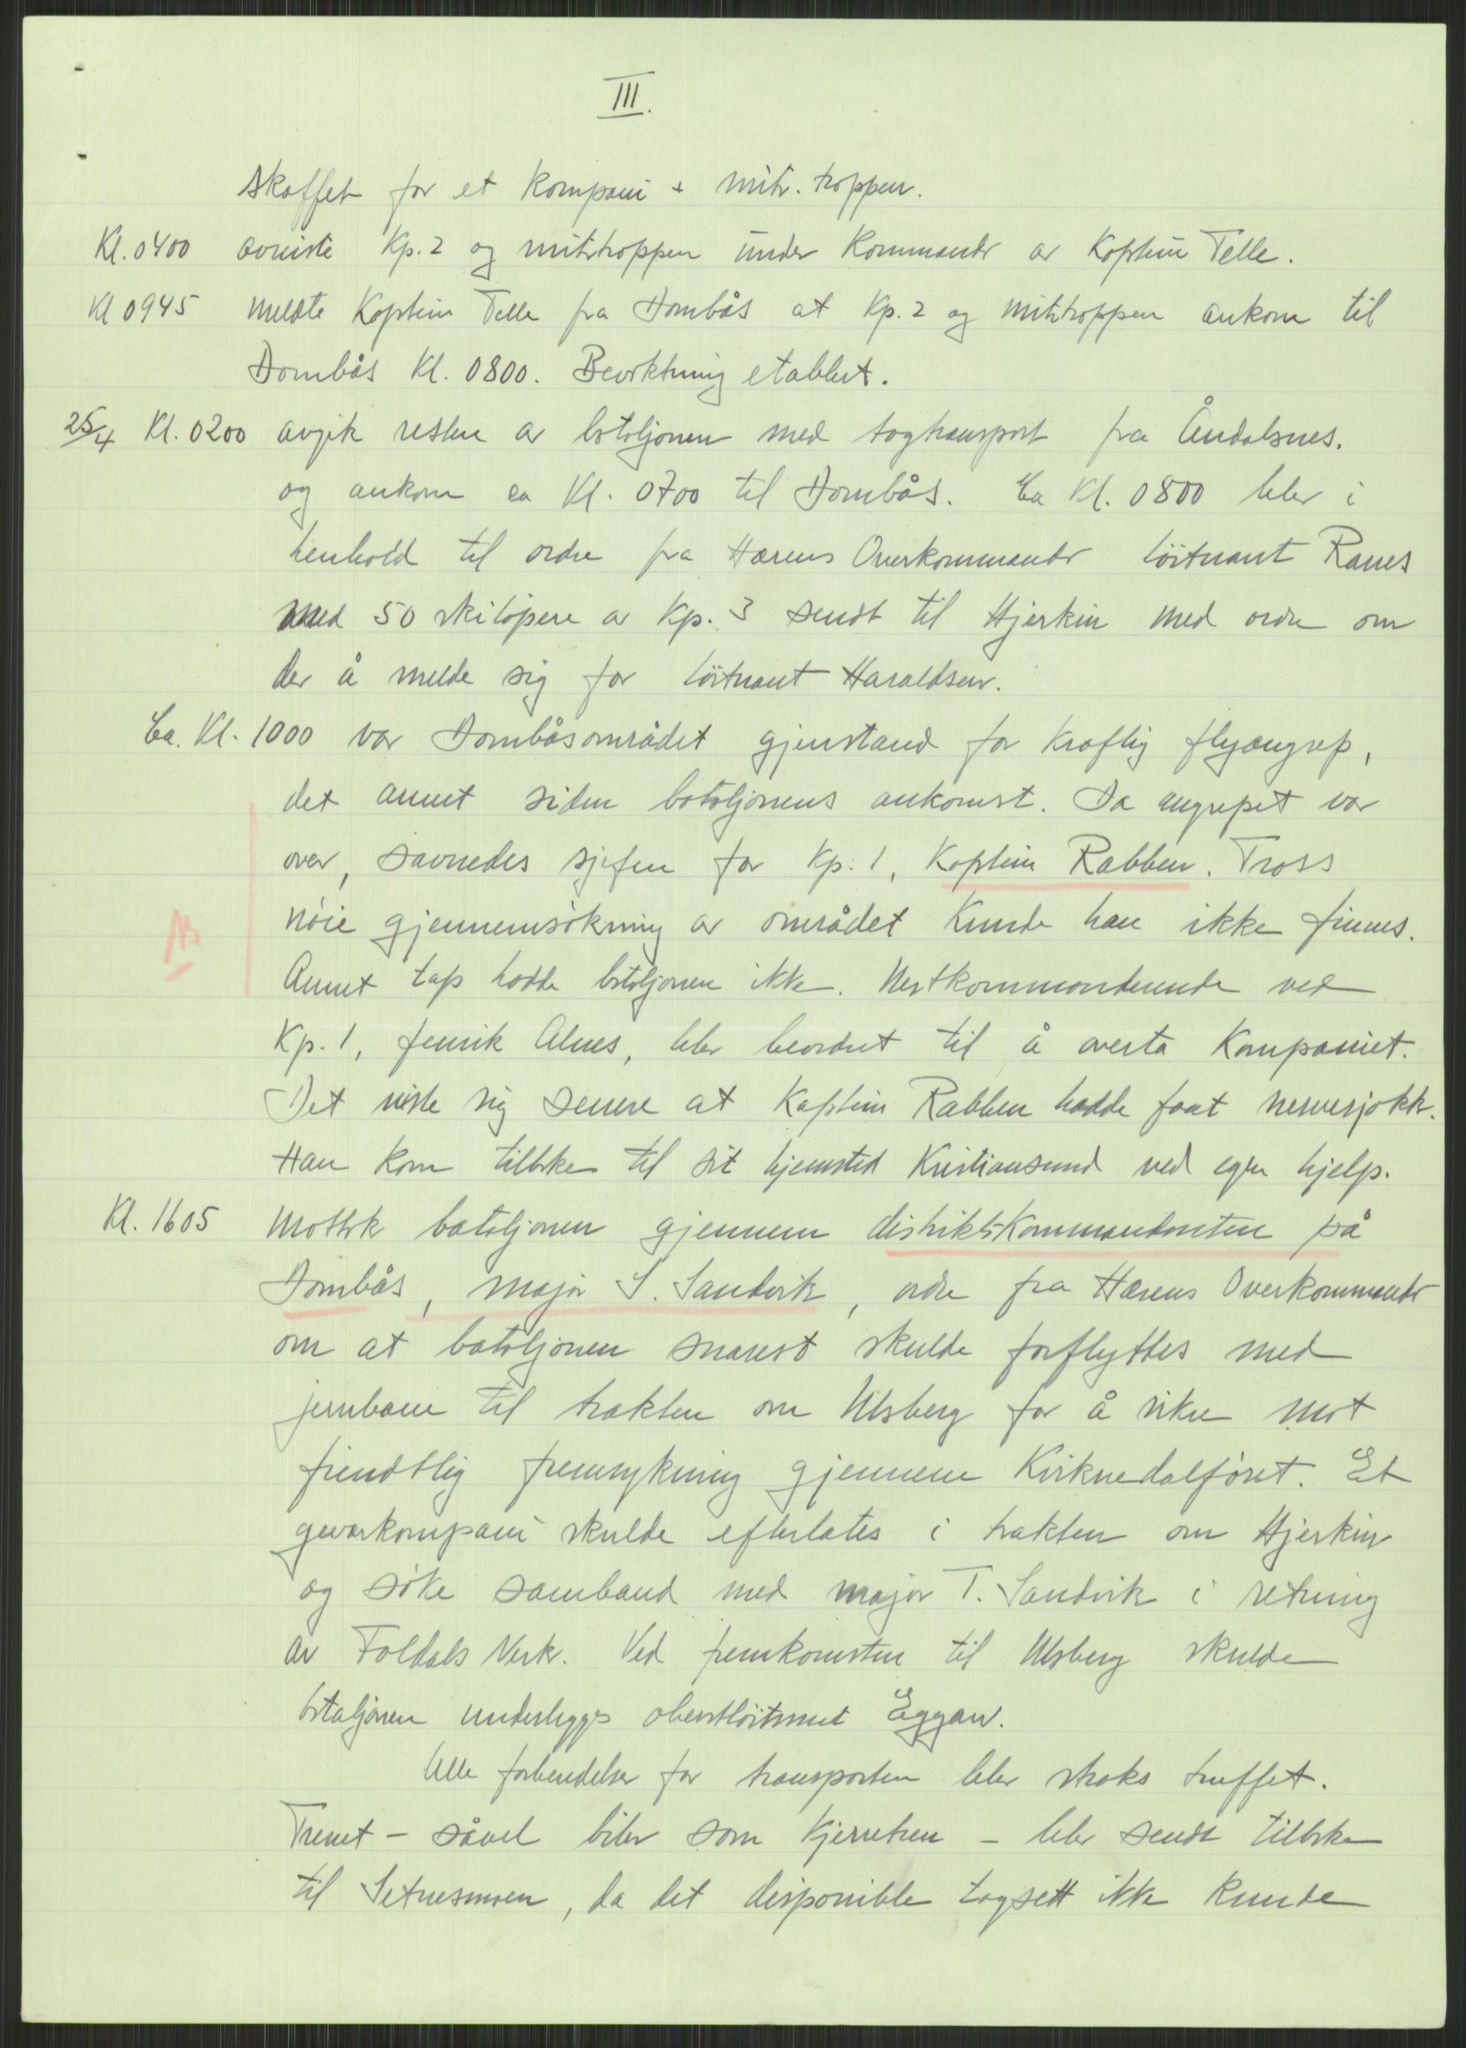 III.
skaffet for et kompani + mitr. troppen.
Kl. 0400 avreiste Kp. 2 og mitrtroppen under kommando av Kaptein Telle.
Kl 0945 meldte Kaptein Telle fra Dombås at Kp. 2 og mitrtroppen ankom til
Dombås Kl. 0800. Bevoktning etablert.
25/4 Kl. 0200 avgik resten av bataljonen med togtransport fra Åndalsnes.
og ankom ca Kl. 0700 til Dombås. Ca Kl. 0800 blev i
henhold til ordre fra Hærens Overkommando löitnant Ranes
med 50 skilöpere av Kp. 3 sendt til Hjerkin med ordre om
der å melde sig for löitnant Haraldsen.
Ca. Kl. 1000 var Dombåsområdet gjenstand for kraftig flyangrep,
det annet siden bataljonens ankomst. Da angrepet var
over, savnedes sjefen for Kp. 1, Kaptein Rabben. Tross
nöie gjennemsökning av området kunde han ikke finnes.
Annet tap hadde bataljonen ikke. Nestkommanderende ved
Kp. 1, fenrik Alnes, blev beordret til å overta kompaniet.
Det viste sig senere at Kaptein Rabben hadde faat nervesjokk.
Han kom tilbake til sit hjemsted Kristiansund ved egen hjelp.
Kl. 1605 Mottok bataljonen gjennem distriktskommandanten på
Dombås, major S. Sandvik, ordre fra Hærens Overkommando
om at bataljonen snarest skulde forflyttes med
jernbane til trakten om Ulsberg for å sikre mot
fiendtlig fremrykning gjennem Kviknedalföret. Et
geværkompani skulde efterlates i trakten om Hjerkin
og söke samband med major T. Sandvik i retning
av Foldals Verk. Ved fremkomsten til Ulsberg skulde
bataljonen underlegges oberstlöitnant Eggan.
Alle forberedelser for transporten blev straks truffet.
Trenet - såvel biler som kjerretren - blev sendt tilbake
til Setnesmoen, da det disponible togsett ikke kunde